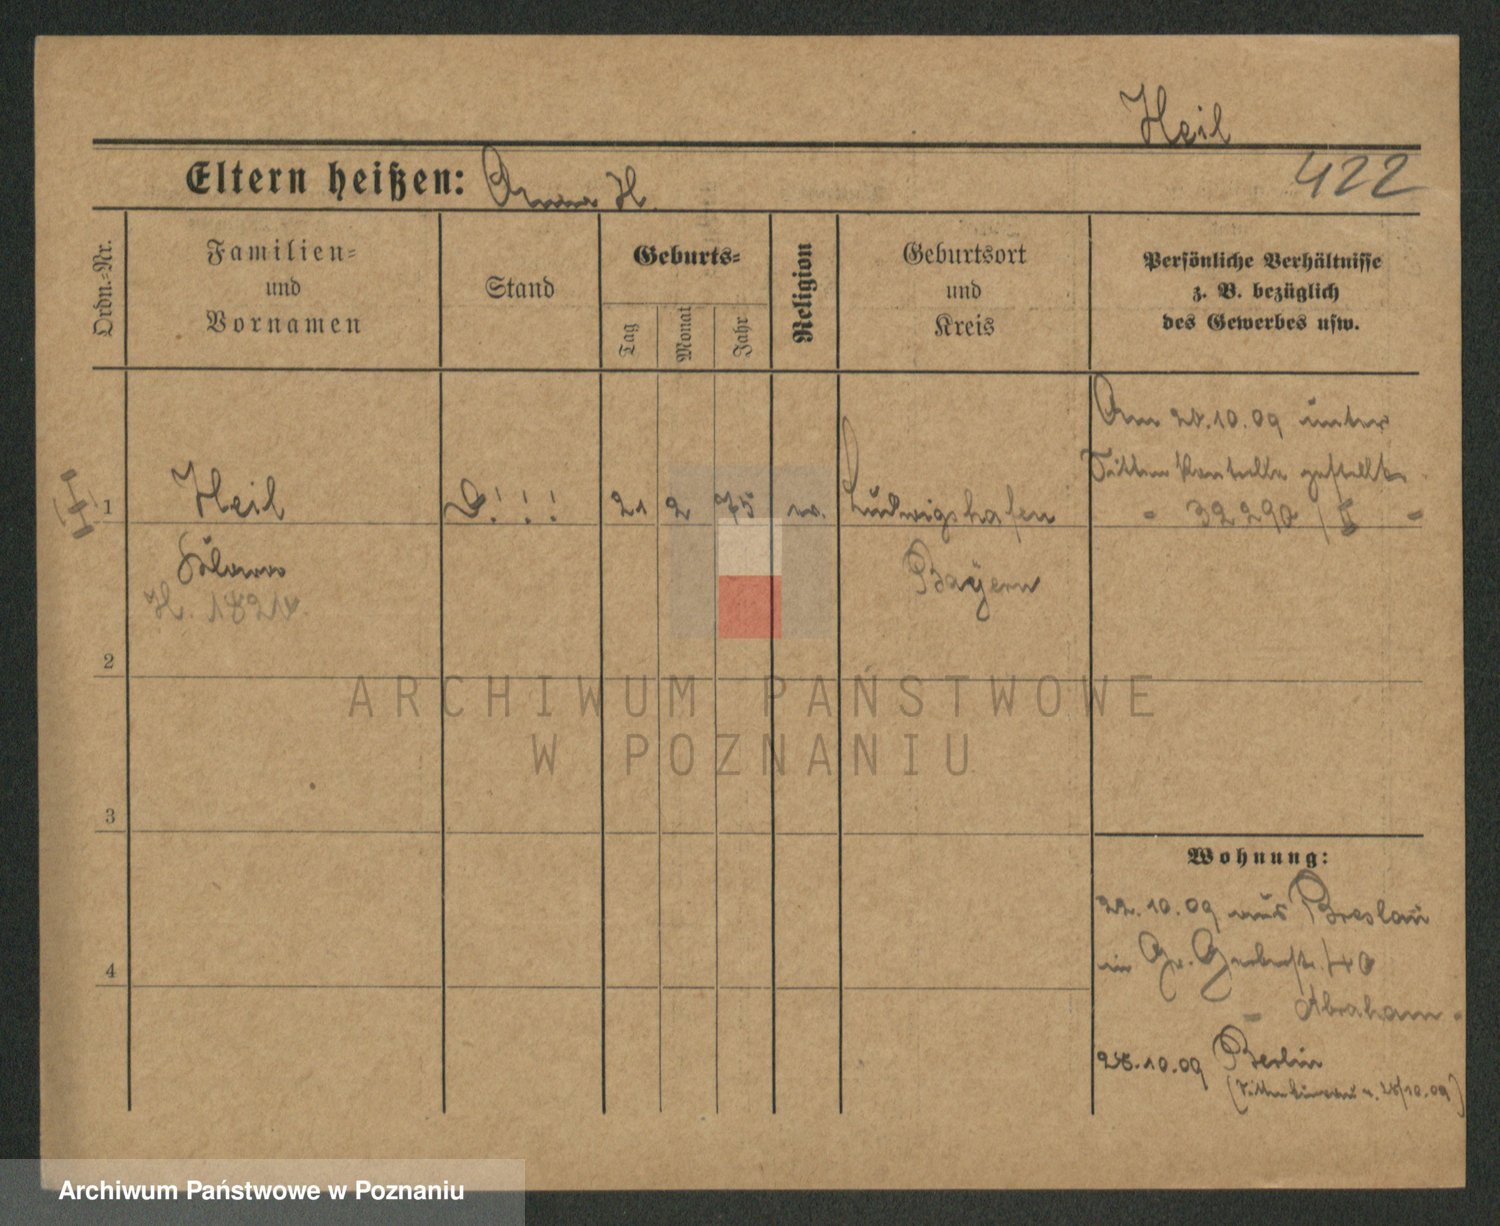 Heil
422
Eltern heißen: Anna H.
Ordn.-Nr.
Familien-
und
Vornamen
Stand
Geburts-
Tag
Monat
Jahr
Religion
Geburtsort
und
Kreis
Persönliche Verhältnisse
z. B. bezüglich
des Gewerbes usw.
Am 10.09 unter
Sittenkontrolle gestellt
- 32290 / -
1
Heil
! ! !
21 2 75
Ludwigshafen
Bayern
H.
2
ARCHIWUM PAŃSTWOWE
W POZNANIU
3
4
Wohnung:
22.10.09 aus Breslau
in Gr. Gerberstr. 40
- Abraham -
10.09 Berlin
Archiwum Państwowe w Poznaniu